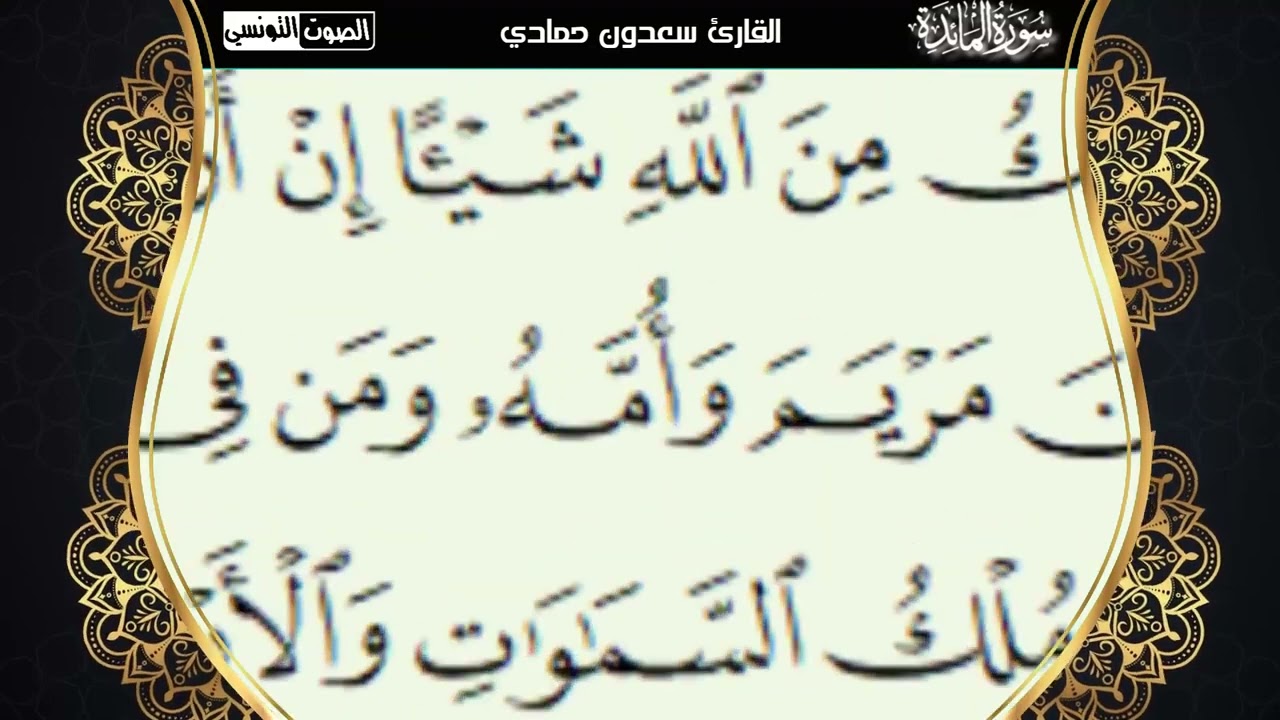 سُورَةُ المَائِدَة
القارئ سعدون حمادي
الصوت التونسي
كُ مِنَ ٱللَّهِ شَيْـًٔا إِنْ أَ
نَ مَرْيَمَ وَأُمَّهُۥ وَمَن فِى
مُلْكُ ٱلسَّمَـٰوَٰتِ وَٱلْأَرْ